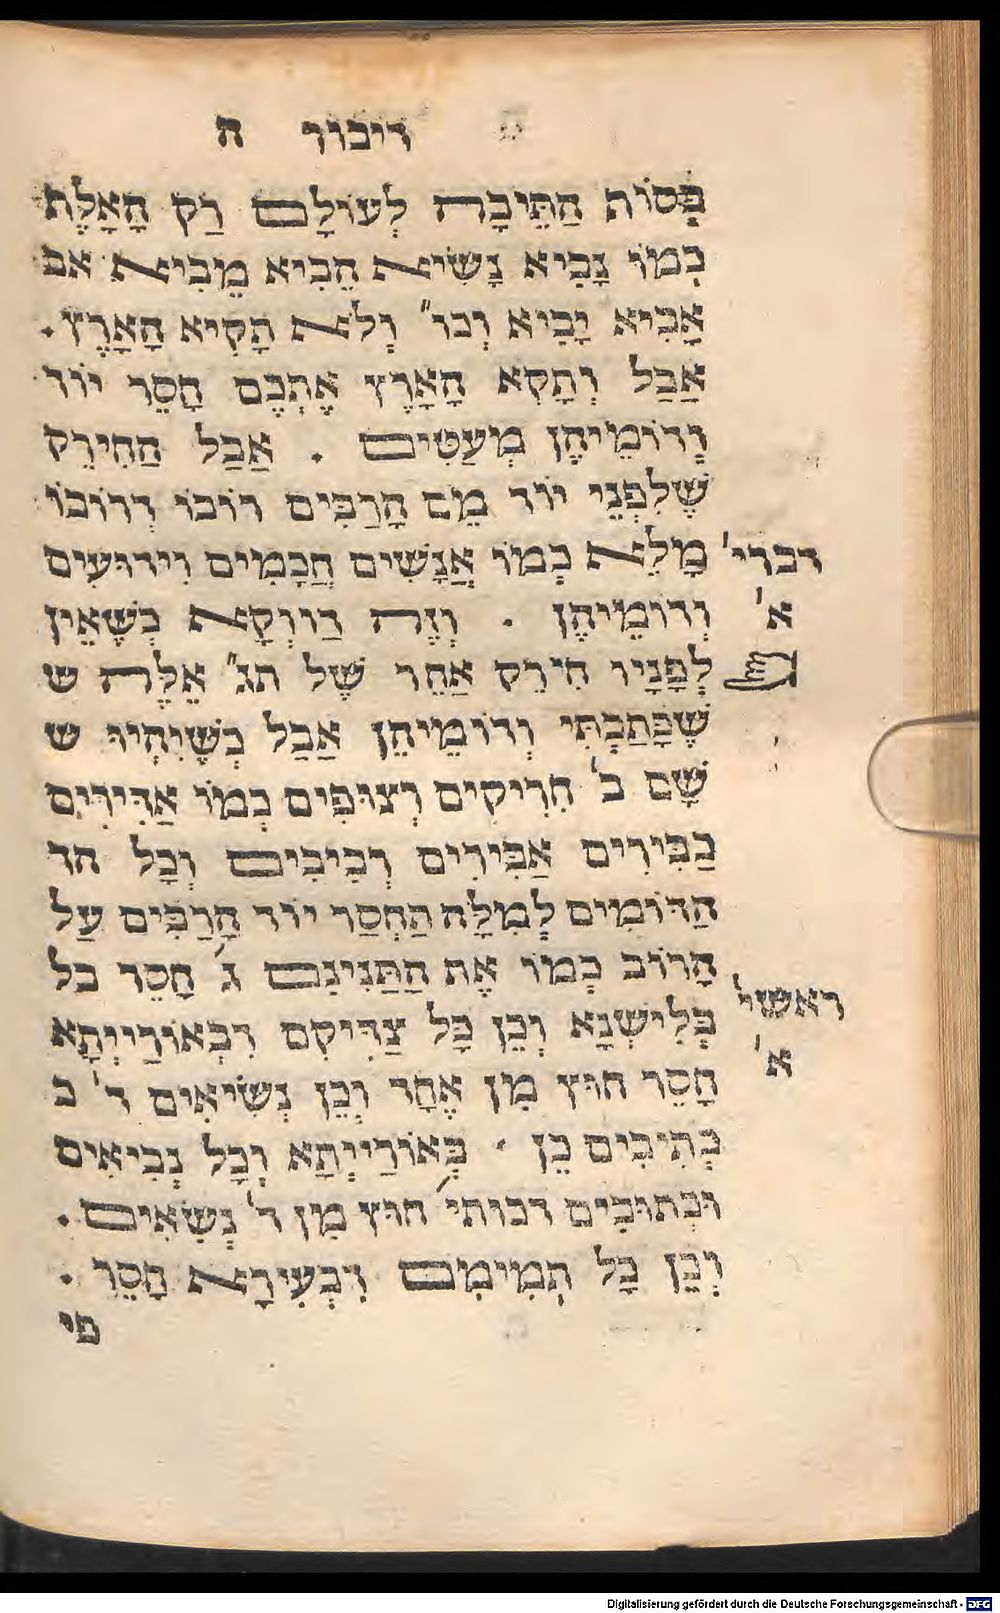 דיבור ה
בְּסוֹת הַתֵּיבָה לְעוֹלָם רַק הָאָלֶת
כְמוֹ נָבִיא נָשִׂיא הֵבִיא מֵבִיא אם
אָבִיא יָבִיא וְכו" וְלֹא הָקִיא הָאָרֶץ.
אֲבָל וְתָקִא הָאָרֶץ אֶתְכֶם חָסֵר יוֹד
וְדוֹמֵיהֶן מְעַטִּים . אֲבָל הַחִירֵק
שֶׁלִפְנֵי יוֹד מֵם הָרַבִּים רוֹבוֹ דְרוֹבוֹ
מָלֵא כְמוֹ אֲנָשִׁים חֲכָמִים וִידוּעִים
וְדוֹמֵיהֶן . וְזֶה דַווְקָא כְשֶׁאֵין
לְפָנָיו חִירֵק אַחֵר שֶׁל תג" אֵלֶּה ש
שֶׁכָּתַבְתִּי וְדוֹמֵיהֶן אֲבָל כְּשֶׁיִהְיוּ ש
שָׁם ב' חִרִיקִים רְצוּפִים כְּמוֹ אַדִּירִים
כַבִּירִים אַבִּירִים רְבִיבִים וְכָל הד
הַדּוֹמִים לְמִלָּה הַחְסַר יוֹד הָרַבִּים עַל
הָרוֹב כְּמוֹ אֶת הַתַּנִינִם ג' חָסֵר כל
בְּלִישָׁנָא וְכֵן כָּל צַדִּיקִם דִבְאוֹרַיְיתָא
חָסֵר חוּץ מִן אֶחָד וְכֵן נְשִׂיאִם ד' כ
כְּתִיבִים כֵן . בְּאוֹרַיְיתָא וְכָל נְבִיאִים
וּכְתוּבִים דכותי' חוּץ מִן ד' נְשִׂאִים .
וְכֵן כָּל תְמִימִם דִבְעִירָא חָסֵר .
פי
דברי'
א'
ראשי'
א'
Digitalisierung gefördert durch die Deutsche Forschungsgemeinschaft - DFG